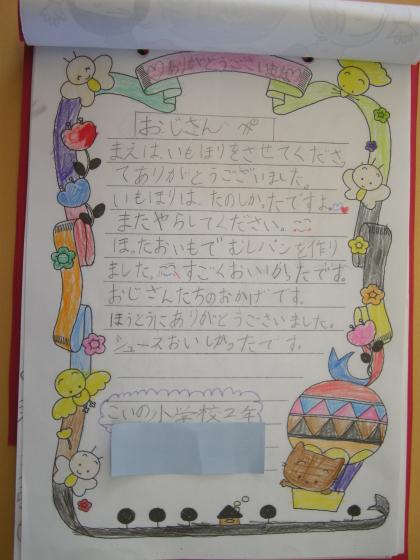 ありがとうございました
おじさんへ
まえは、いもほりをさせてくださっ
てありがとうございました。
いもほりは、たのしかったですよ。
またやらしてください。
ほったおいもでむしパンを作り
ました。すごくおいしかったです。
おじさんたちのおかげです。
ほうとうにありがとうございました。
ジュースおいしかったです。
こいの小学校2年